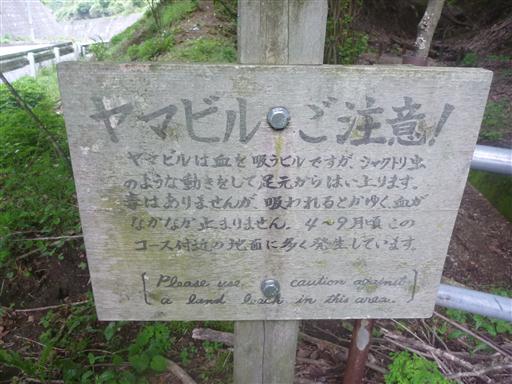 ヤマビルご注意!
ヤマビルは血を吸うビルですが、シャクトリ虫
のような動きをして足元からはい上ります。
毒はありませんが、吸われるとかゆく、血が
なかなか止まりません。4～9月頃この
コース付近の地面に多く発生しています。
Please use caution against
a land leach in this area.